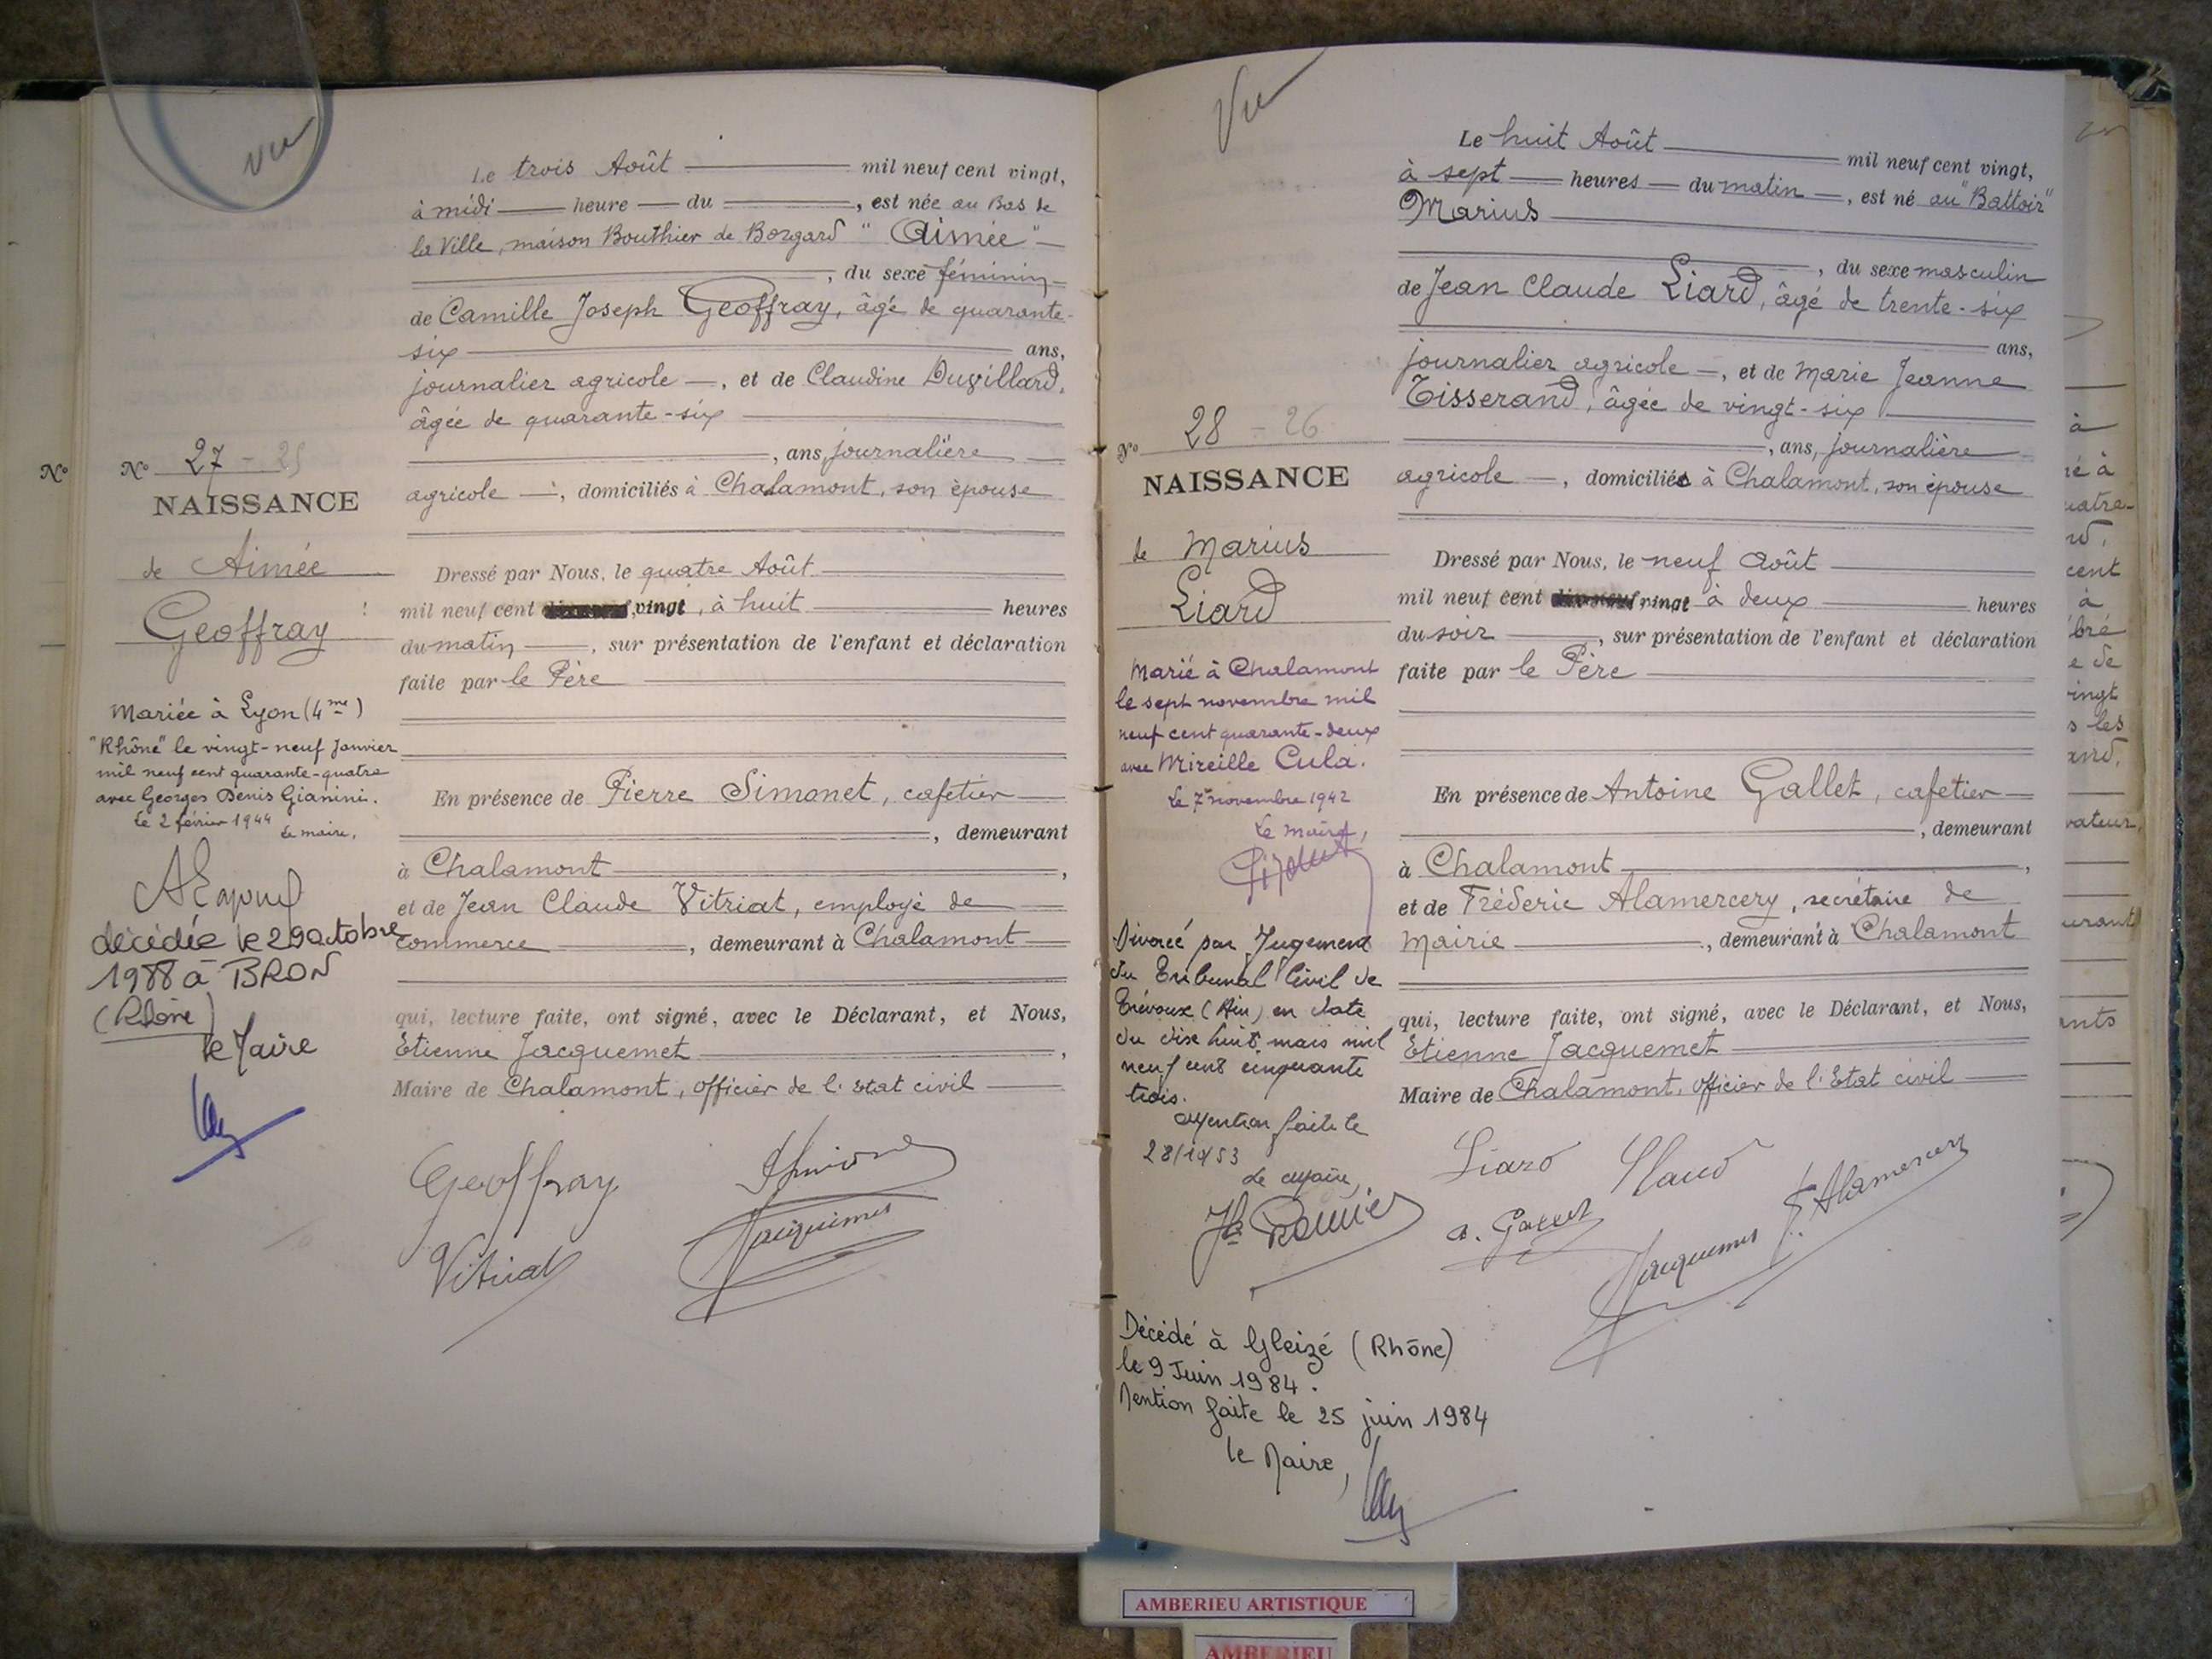 Vu
Le trois Août mil neuf cent vingt,
à midi heure du , est née au Bas de
la Ville, maison Bouthier de Borgard " Aimée "
, du sexe féminin
de Camille Joseph Geoffray, âgé de quarante-
six ans,
journalier agricole , et de Claudine Duvillard,
âgée de quarante-six
, ans, journalière
agricole , domiciliés à Chalamont, son épouse
Dressé par Nous, le quatre Août
mil neuf cent vingt, à huit heures
du matin , sur présentation de l'enfant et déclaration
faite par le Père
En présence de Pierre Simonet, cafetier
, demeurant
à Chalamont ,
et de Jean Claude Vitriat, employé de
commerce , demeurant à Chalamont
qui, lecture faite, ont signé, avec le Déclarant, et Nous,
Etienne Jacquemet ,
Maire de Chalamont, officier de l'Etat civil
Geoffray
Vitriat
N°
N° 27 - 25
NAISSANCE
de Aimée
Geoffray
Mariée à Lyon (4me)
"Rhône" le vingt-neuf Janvier
mil neuf cent quarante-quatre
avec Georges Denis Gianini.
Le 2 février 1944
Le maire,
décédée le 29 octobre
1988 à BRON
(Rhône)
le Maire
Vu
Le huit Août mil neuf cent vingt,
à sept heures du matin , est né au "Battoir"
Marius
, du sexe masculin
de Jean Claude Liard, âgé de trente-six
ans,
journalier agricole , et de Marie Jeanne
Tisserand, âgée de vingt-six
, ans, journalière
agricole , domiciliés à Chalamont, son épouse
Dressé par Nous, le neuf Août
mil neuf cent vingt à deux heures
du soir , sur présentation de l'enfant et déclaration
faite par le Père
En présence de Antoine Gallet, cafetier
, demeurant
à Chalamont ,
et de Fréderic Alamercery, secrétaire de
Mairie , demeurant à Chalamont
qui, lecture faite, ont signé, avec le Déclarant, et Nous,
Etienne Jacquemet
Maire de Chalamont, officier de l'Etat civil
Liard Claud
a. Gallet
F. Alamercery
Jacquemet
N° 28 - 26
NAISSANCE
de Marius
Liard
Marié à Chalamont
le sept novembre mil
neuf cent quarante-deux
avec Mireille Cula.
Le 7 novembre 1942
Le maire,
Divorcé par Jugement
du Tribunal Civil de
Trévoux (Ain) en date
du dix huit mars mil
neuf cent cinquante
trois.
Mention faite le
28/10/53
Le Maire,
Décédé à Gleizé (Rhône)
le 9 Juin 1984.
Mention faite le 25 juin 1984
le Maire,
AMBERIEU ARTISTIQUE
AMBERIEU